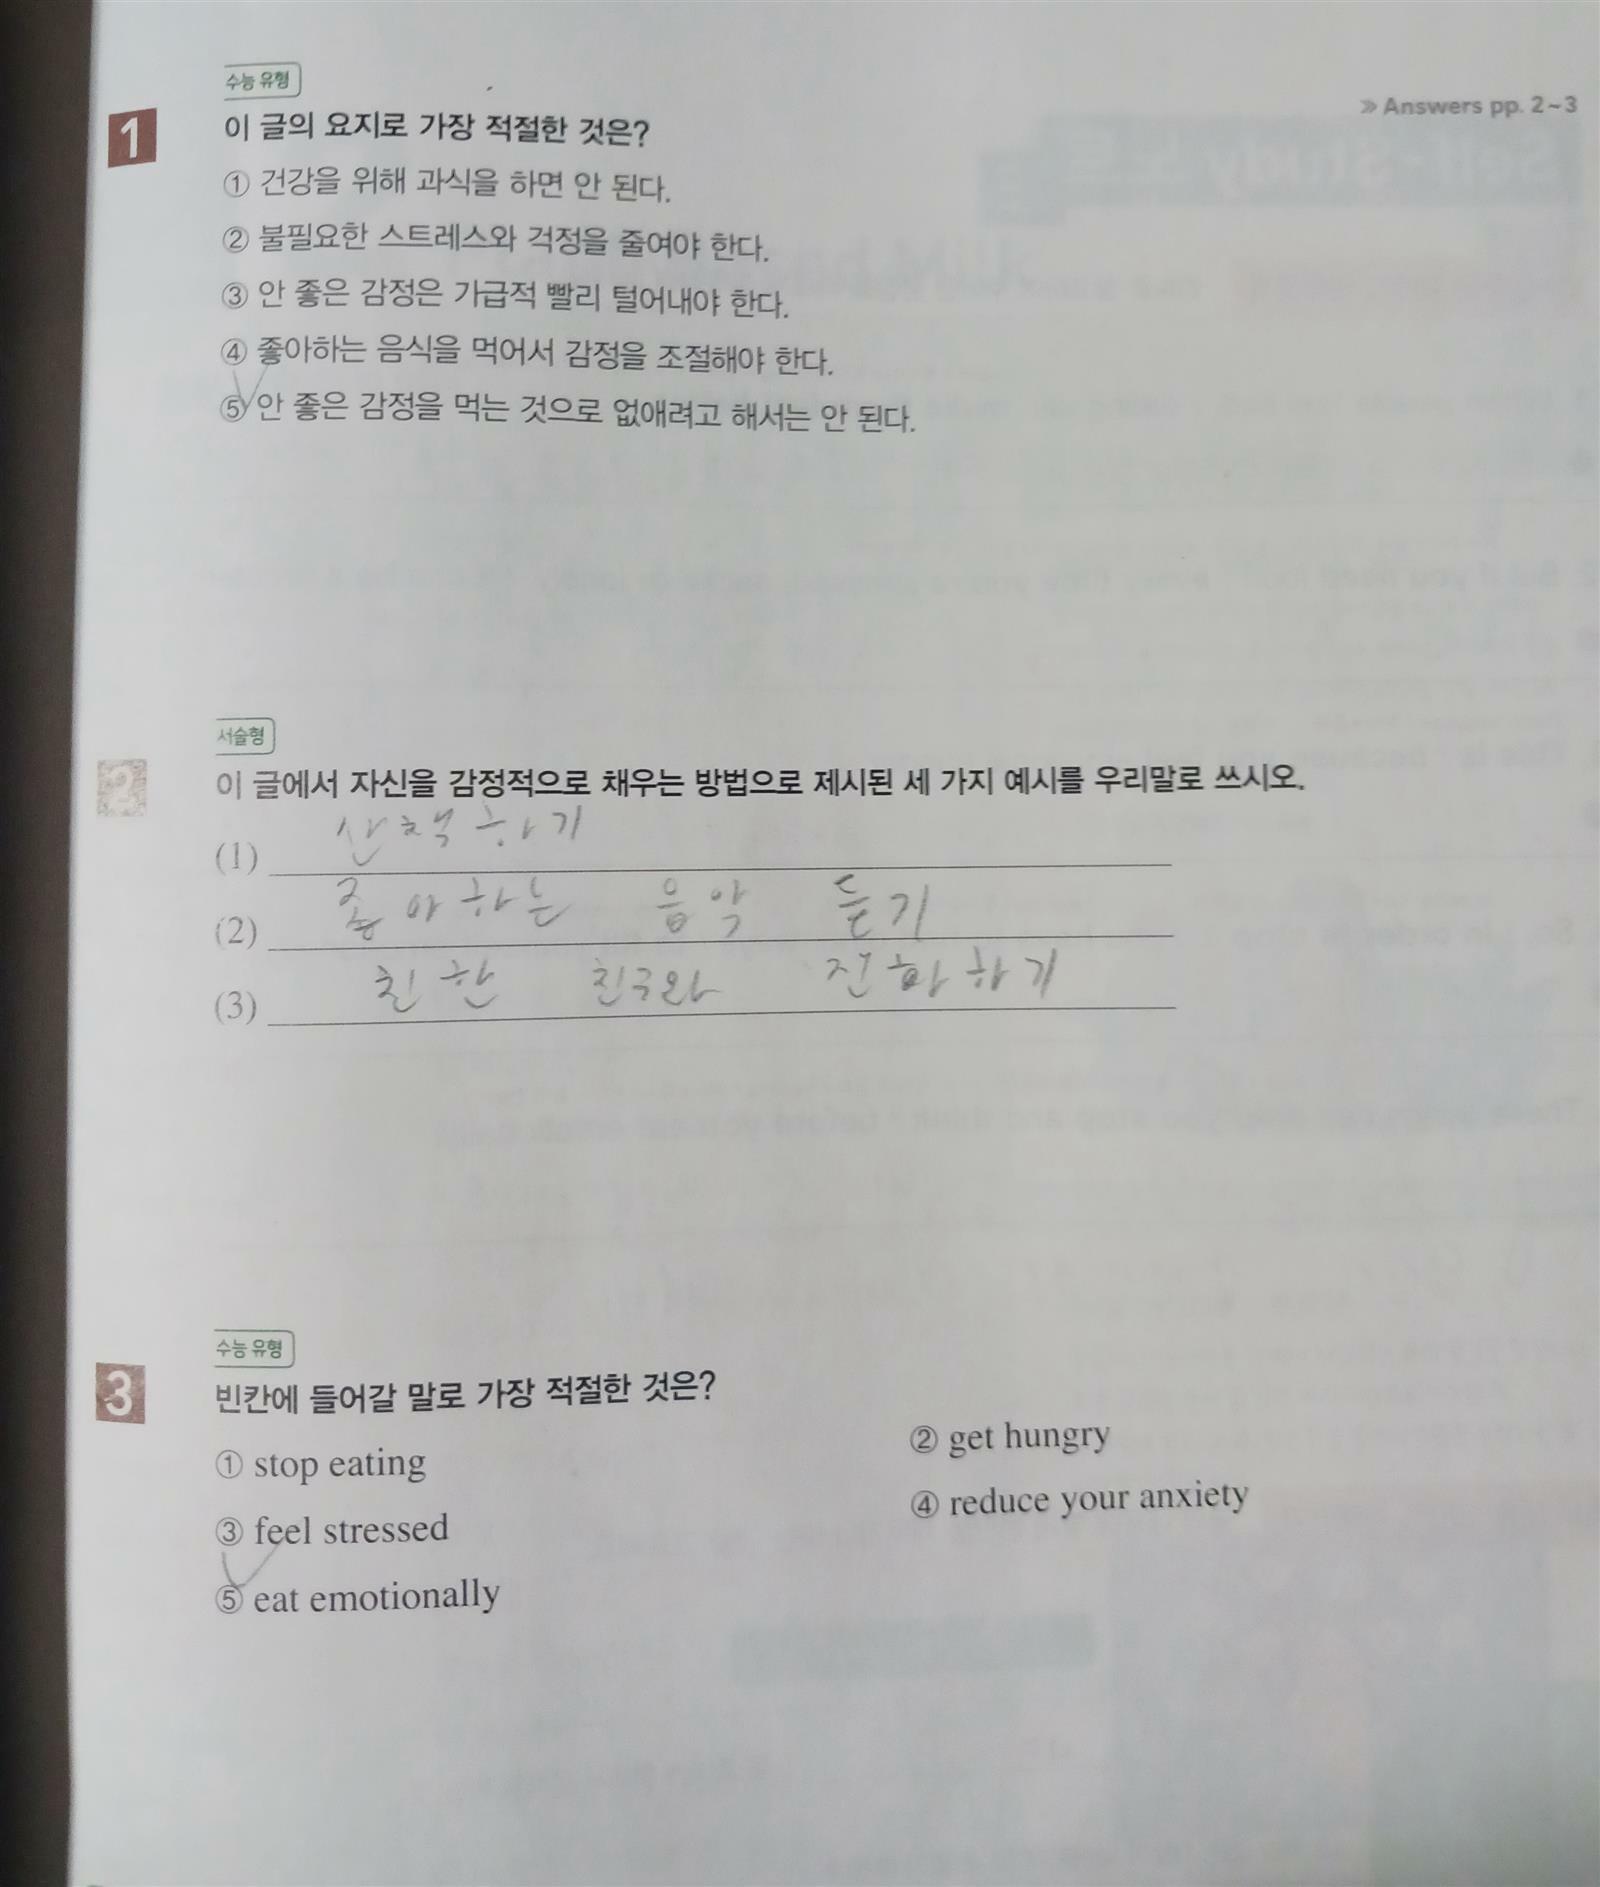 수능 유형
» Answers pp. 2~3
1 이 글의 요지로 가장 적절한 것은?
① 건강을 위해 과식을 하면 안 된다.
② 불필요한 스트레스와 걱정을 줄여야 한다.
③ 안 좋은 감정은 가급적 빨리 털어내야 한다.
④ 좋아하는 음식을 먹어서 감정을 조절해야 한다.
⑤ 안 좋은 감정을 먹는 것으로 없애려고 해서는 안 된다.
서술형
2 이 글에서 자신을 감정적으로 채우는 방법으로 제시된 세 가지 예시를 우리말로 쓰시오.
(1) 산책하기
(2) 좋아하는 음악 듣기
(3) 친한 친구와 전화하기
수능 유형
3 빈칸에 들어갈 말로 가장 적절한 것은?
① stop eating
② get hungry
③ feel stressed
④ reduce your anxiety
⑤ eat emotionally